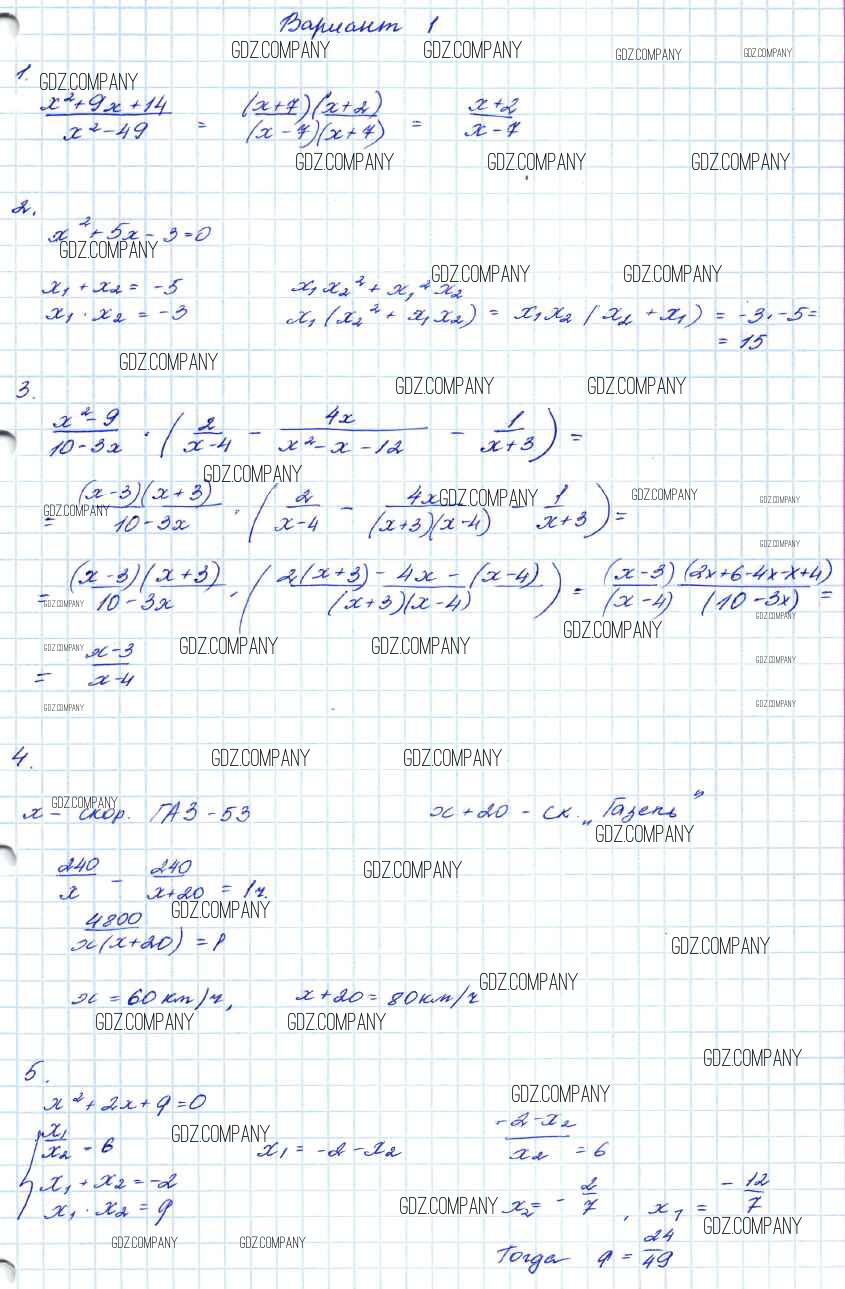 Вариант 1
GDZ.COMPANY GDZ.COMPANY GDZ.COMPANY GDZ.COMPANY
1. GDZ.COMPANY
(x²+9x+14)/(x²-49) = ((x+7)(x+2))/((x-7)(x+7)) = (x+2)/(x-7)
GDZ.COMPANY GDZ.COMPANY GDZ.COMPANY
2.
x²+5x-3=0
GDZ.COMPANY
GDZ.COMPANY GDZ.COMPANY
x₁+x₂=-5 x₁x₂²+x₁²x₂
x₁·x₂=-3 x₁(x₂²+x₁x₂) = x₁x₂(x₂+x₁) = -3·-5=
= 15
GDZ.COMPANY
3. GDZ.COMPANY GDZ.COMPANY
(x²-9)/(10-3x) · (2/(x-4) - 4x/(x²-x-12) - 1/(x+3)) =
GDZ.COMPANY
= ((x-3)(x+3))/(10-3x) · (2/(x-4) - 4x/((x+3)(x-4)) - 1/(x+3)) =
GDZ.COMPANY GDZ.COMPANY GDZ.COMPANY GDZ.COMPANY
GDZ.COMPANY
= ((x-3)(x+3))/(10-3x) · ((2(x+3)-4x-(x-4))/((x+3)(x-4))) = ((x-3)(2x+6-4x-x+4))/((x-4)(10-3x)) =
GDZ.COMPANY GDZ.COMPANY
GDZ.COMPANY GDZ.COMPANY GDZ.COMPANY GDZ.COMPANY
= (x-3)/(x-4)
GDZ.COMPANY
GDZ.COMPANY GDZ.COMPANY
4. GDZ.COMPANY GDZ.COMPANY
GDZ.COMPANY
x - скор. ГАЗ-53 x+20 - ск. „Газель"
GDZ.COMPANY
240/x - 240/(x+20) = 1ч.
GDZ.COMPANY
GDZ.COMPANY
4800/(x(x+20)) = 1
GDZ.COMPANY
GDZ.COMPANY
x = 60 км/ч, x+20 = 80 км/ч
GDZ.COMPANY GDZ.COMPANY
GDZ.COMPANY
5.
x²+2x+q=0
GDZ.COMPANY
{ x₁/x₂ = 6 x₁ = -2-x₂ (-2-x₂)/x₂ = 6
GDZ.COMPANY
x₁+x₂=-2
x₁·x₂=q x₂= -2/7, x₁ = -12/7
GDZ.COMPANY GDZ.COMPANY
GDZ.COMPANY GDZ.COMPANY
Тогда q = 24/49